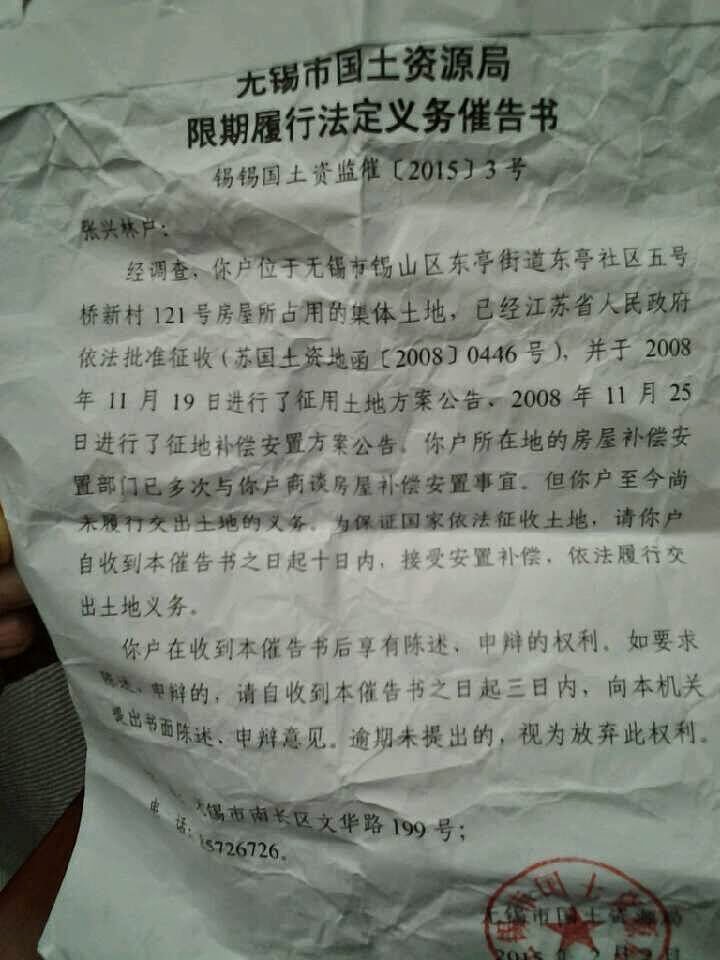 无锡市国土资源局
限期履行法定义务催告书
锡锡国土资监催〔2015〕3号
张兴林户：
经调查，你户位于无锡市锡山区东亭街道东亭社区五号
桥新村121号房屋所占用的集体土地，已经江苏省人民政府
依法批准征收（苏国土资地函〔2008〕0446号），并于2008
年11月19日进行了征用土地方案公告、2008年11月25
日进行了征地补偿安置方案公告。你户所在地的房屋补偿安
置部门已多次与你户商谈房屋补偿安置事宜。但你户至今尚
未履行交出土地的义务。为保证国家依法征收土地，请你户
自收到本催告书之日起十日内，接受安置补偿，依法履行交
出土地义务。
你户在收到本催告书后享有陈述、申辩的权利。如要求
陈述、申辩的，请自收到本催告书之日起三日内，向本机关
提出书面陈述、申辩意见。逾期未提出的，视为放弃此权利。
无锡市南长区文华路199号；
电话：85726726。
无锡市国土资源局
2015年2月2日